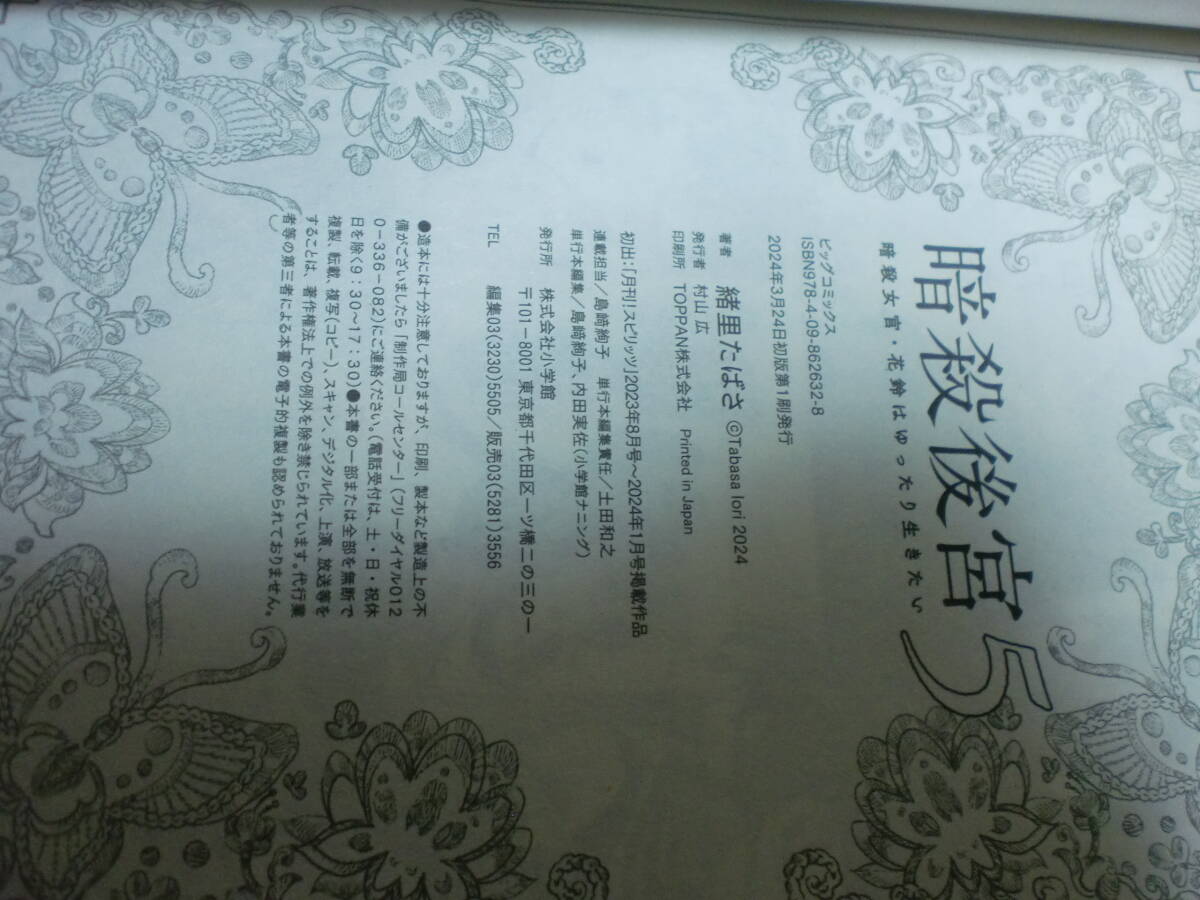 暗殺後宮5
暗殺女官・花鈴はゆったり生きたい
ビッグコミックス
ISBN978-4-09-862632-8
2024年3月24日初版第1刷発行
著者 緒里たばさ ©Tabasa Iori 2024
発行者 村山 広
印刷所 TOPPAN株式会社 Printed in Japan
初出:「月刊!スピリッツ」2023年8月号〜2024年1月号掲載作品
連載担当/島﨑絢子 単行本編集責任/土田和之
単行本編集/島﨑絢子、内田実佐(小学館ナニング)
発行所 株式会社小学館
〒101-8001 東京都千代田区一ツ橋二の三の一
TEL 編集03(3230)5505/販売03(5281)3556
●造本には十分注意しておりますが、印刷、製本など製造上の不
備がございましたら「制作局コールセンター」(フリーダイヤル012
0-336-082)にご連絡ください。(電話受付は、土・日・祝休
日を除く9:30〜17:30)●本書の一部または全部を無断で
複製、転載、複写(コピー)、スキャン、デジタル化、上演、放送等を
することは、著作権法上での例外を除き禁じられています。代行業
者等の第三者による本書の電子的複製も認められておりません。